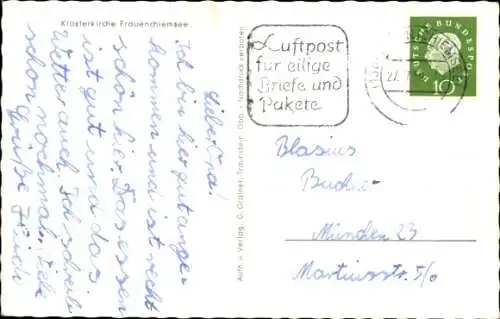 Klosterkirche Frauenchiemsee
Liebe Oma!
Ich bin hier gut ange-
kommen und ist recht
schön hier. Das essen
ist gut und das
Wetter auch. Ich schreib
schon nochmal. Viele
Grüße Erich
Aufn. u. Verlag G. Grainer, Traunstein Obb. - Nachdruck verboten
Luftpost
für eilige
Briefe und
Pakete
DEUTSCHE BUNDESPOST
10
Blasius
München 23
Martiusstr. 5/0